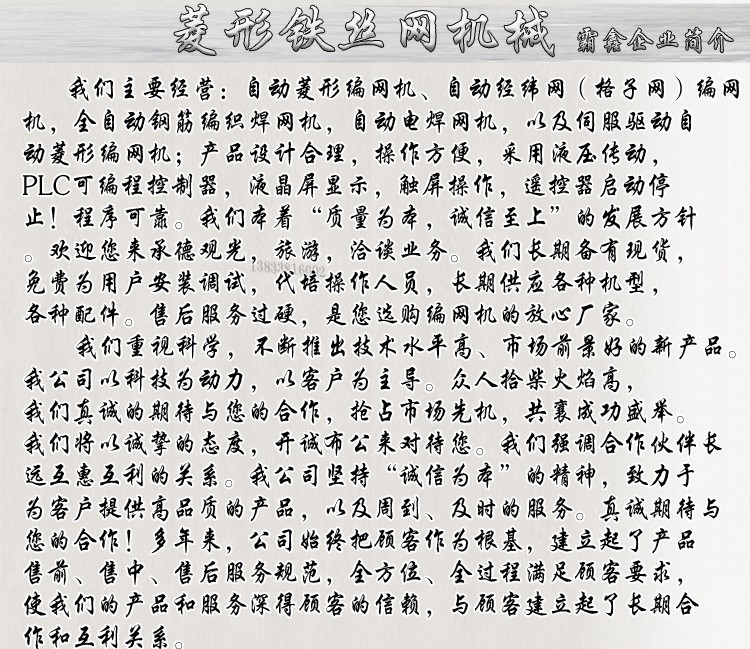 菱形铁丝网机械 霸鑫企业简介
我们主要经营：自动菱形编网机、自动经纬网（格子网）编网
机，全自动钢筋编织焊网机，自动电焊网机，以及伺服驱动自
动菱形编网机；产品设计合理，操作方便，采用液压传动，
PLC可编程控制器，液晶屏显示，触屏操作，遥控器启动停
止！程序可靠。我们本着“质量为本，诚信至上”的发展方针
。欢迎您来承德观光，旅游，洽谈业务。我们长期备有现货，
免费为用户安装调试，代培操作人员，长期供应各种机型，
各种配件。售后服务过硬，是您选购编网机的放心厂家。
我们重视科学，不断推出技术水平高、市场前景好的新产品。
我公司以科技为动力，以客户为主导。众人拾柴火焰高，
我们真诚的期待与您的合作，抢占市场先机，共襄成功盛举。
我们将以诚挚的态度，开诚布公来对待您。我们强调合作伙伴长
远互惠互利的关系。我公司坚持“诚信为本”的精神，致力于
为客户提供高品质的产品，以及周到、及时的服务。真诚期待与
您的合作！多年来，公司始终把顾客作为根基，建立起了产品
售前、售中、售后服务规范，全方位、全过程满足顾客要求，
使我们的产品和服务深得顾客的信赖，与顾客建立起了长期合
作和互利关系。